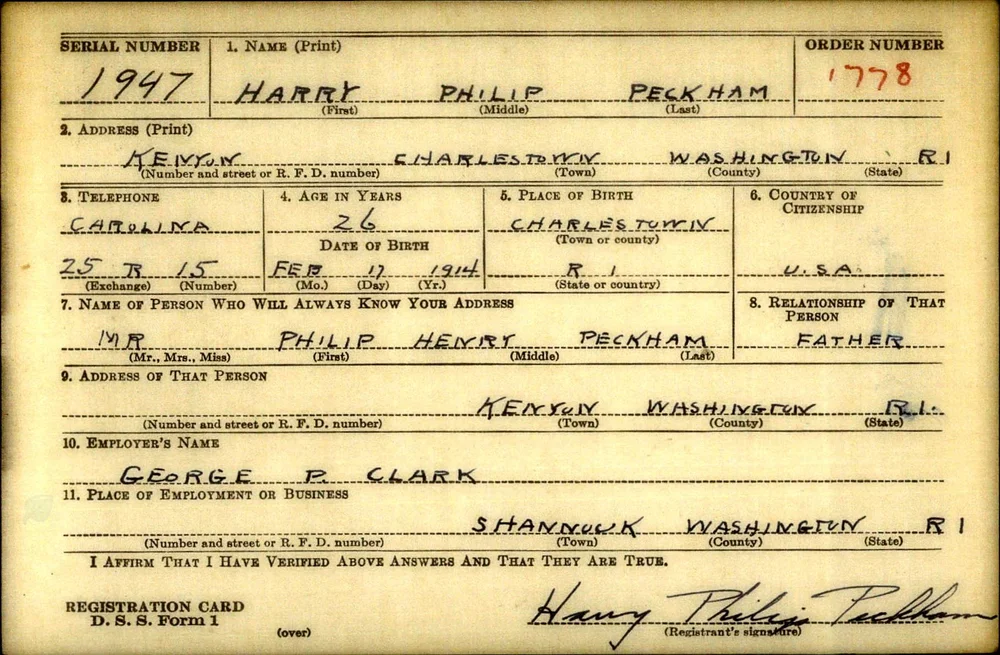 SERIAL NUMBER 1. NAME (Print) ORDER NUMBER
1947 HARRY PHILIP PECKHAM 1778
(First) (Middle) (Last)
2. ADDRESS (Print)
KENYON CHARLESTOWN WASHINGTON R I
(Number and street or R. F. D. number) (Town) (County) (State)
3. TELEPHONE 4. AGE IN YEARS 5. PLACE OF BIRTH 6. COUNTRY OF
CITIZENSHIP
CAROLINA 26 CHARLESTOWN
DATE OF BIRTH (Town or county)
25 R 15 FEB 17 1914 R I U.S.A.
(Exchange) (Number) (Mo.) (Day) (Yr.) (State or country)
7. NAME OF PERSON WHO WILL ALWAYS KNOW YOUR ADDRESS 8. RELATIONSHIP OF THAT
PERSON
MR PHILIP HENRY PECKHAM FATHER
(Mr., Mrs., Miss) (First) (Middle) (Last)
9. ADDRESS OF THAT PERSON
KENYON WASHINGTON R.I.
(Number and street or R. F. D. number) (Town) (County) (State)
10. EMPLOYER'S NAME
GEORGE P. CLARK
11. PLACE OF EMPLOYMENT OR BUSINESS
SHANNOCK WASHINGTON R I
(Number and street or R. F. D. number) (Town) (County) (State)
I AFFIRM THAT I HAVE VERIFIED ABOVE ANSWERS AND THAT THEY ARE TRUE.
REGISTRATION CARD
D. S. S. Form 1 Harry Philip Peckham
(over) (Registrant's signature)